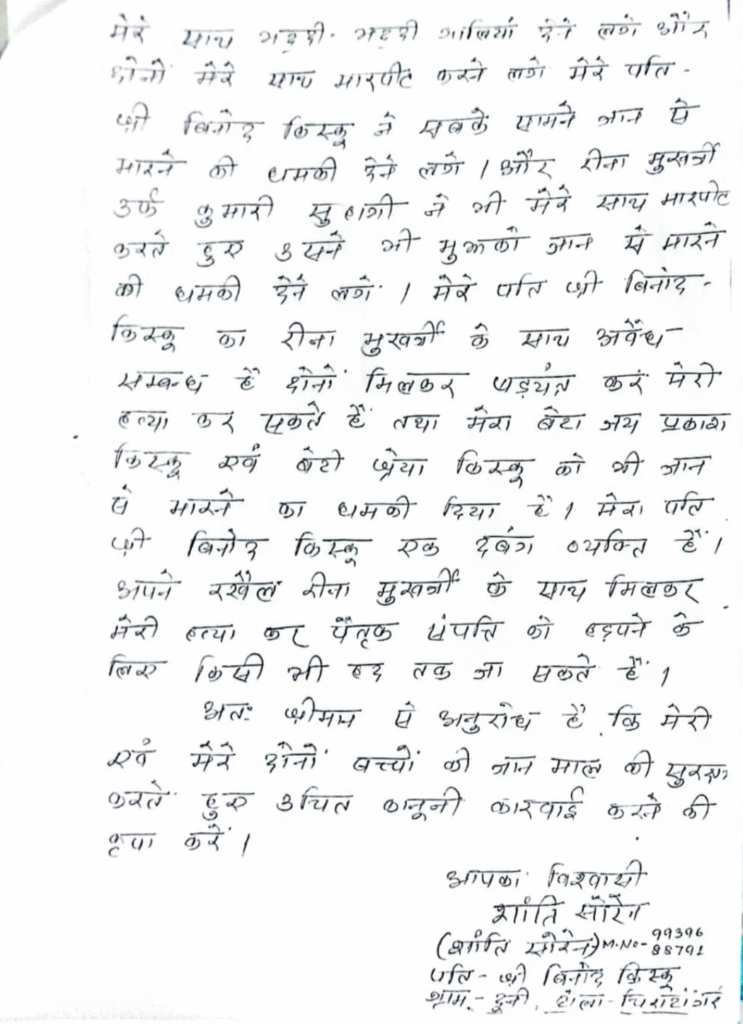 मेरे साथ भद्दी-भद्दी गालियां देने लगे और
दोनों मेरे साथ मारपीट करने लगे मेरे पति-
श्री बिनोद किस्कू ने सबके सामने जान से
मारने की धमकी देने लगे। और रीना मुखर्जी
उर्फ कुमारी सुहागी ने भी मेरे साथ मारपीट
करते हुए उसने भी मुझको जान से मारने
की धमकी देने लगे। मेरे पति श्री बिनोद-
किस्कू का रीना मुखर्जी के साथ अवैध
सम्बन्ध है दोनों मिलकर षड्यंत्र कर मेरी
हत्या कर सकते हैं तथा मेरा बेटा जय प्रकाश
किस्कू एवं बेटी श्रेया किस्कू को भी जान
से मारने का धमकी दिया है। मेरा पति
श्री बिनोद किस्कू एक दबंग व्यक्ति हैं।
अपने रखैल रीना मुखर्जी के साथ मिलकर
मेरी हत्या कर पैतृक संपत्ति को हड़पने के
लिए किसी भी हद तक जा सकते हैं।
अतः श्रीमान से अनुरोध है कि मेरी
एवं मेरे दोनों बच्चों की जान माल की सुरक्षा
करते हुए उचित कानूनी कारवाई करने की
कृपा करें।
आपका विश्वासी
शांति सोरेन
(शांति सोरेन) M.No- 99396
88791
पति- श्री बिनोद किस्कू
ग्राम- दुनी, टोला-